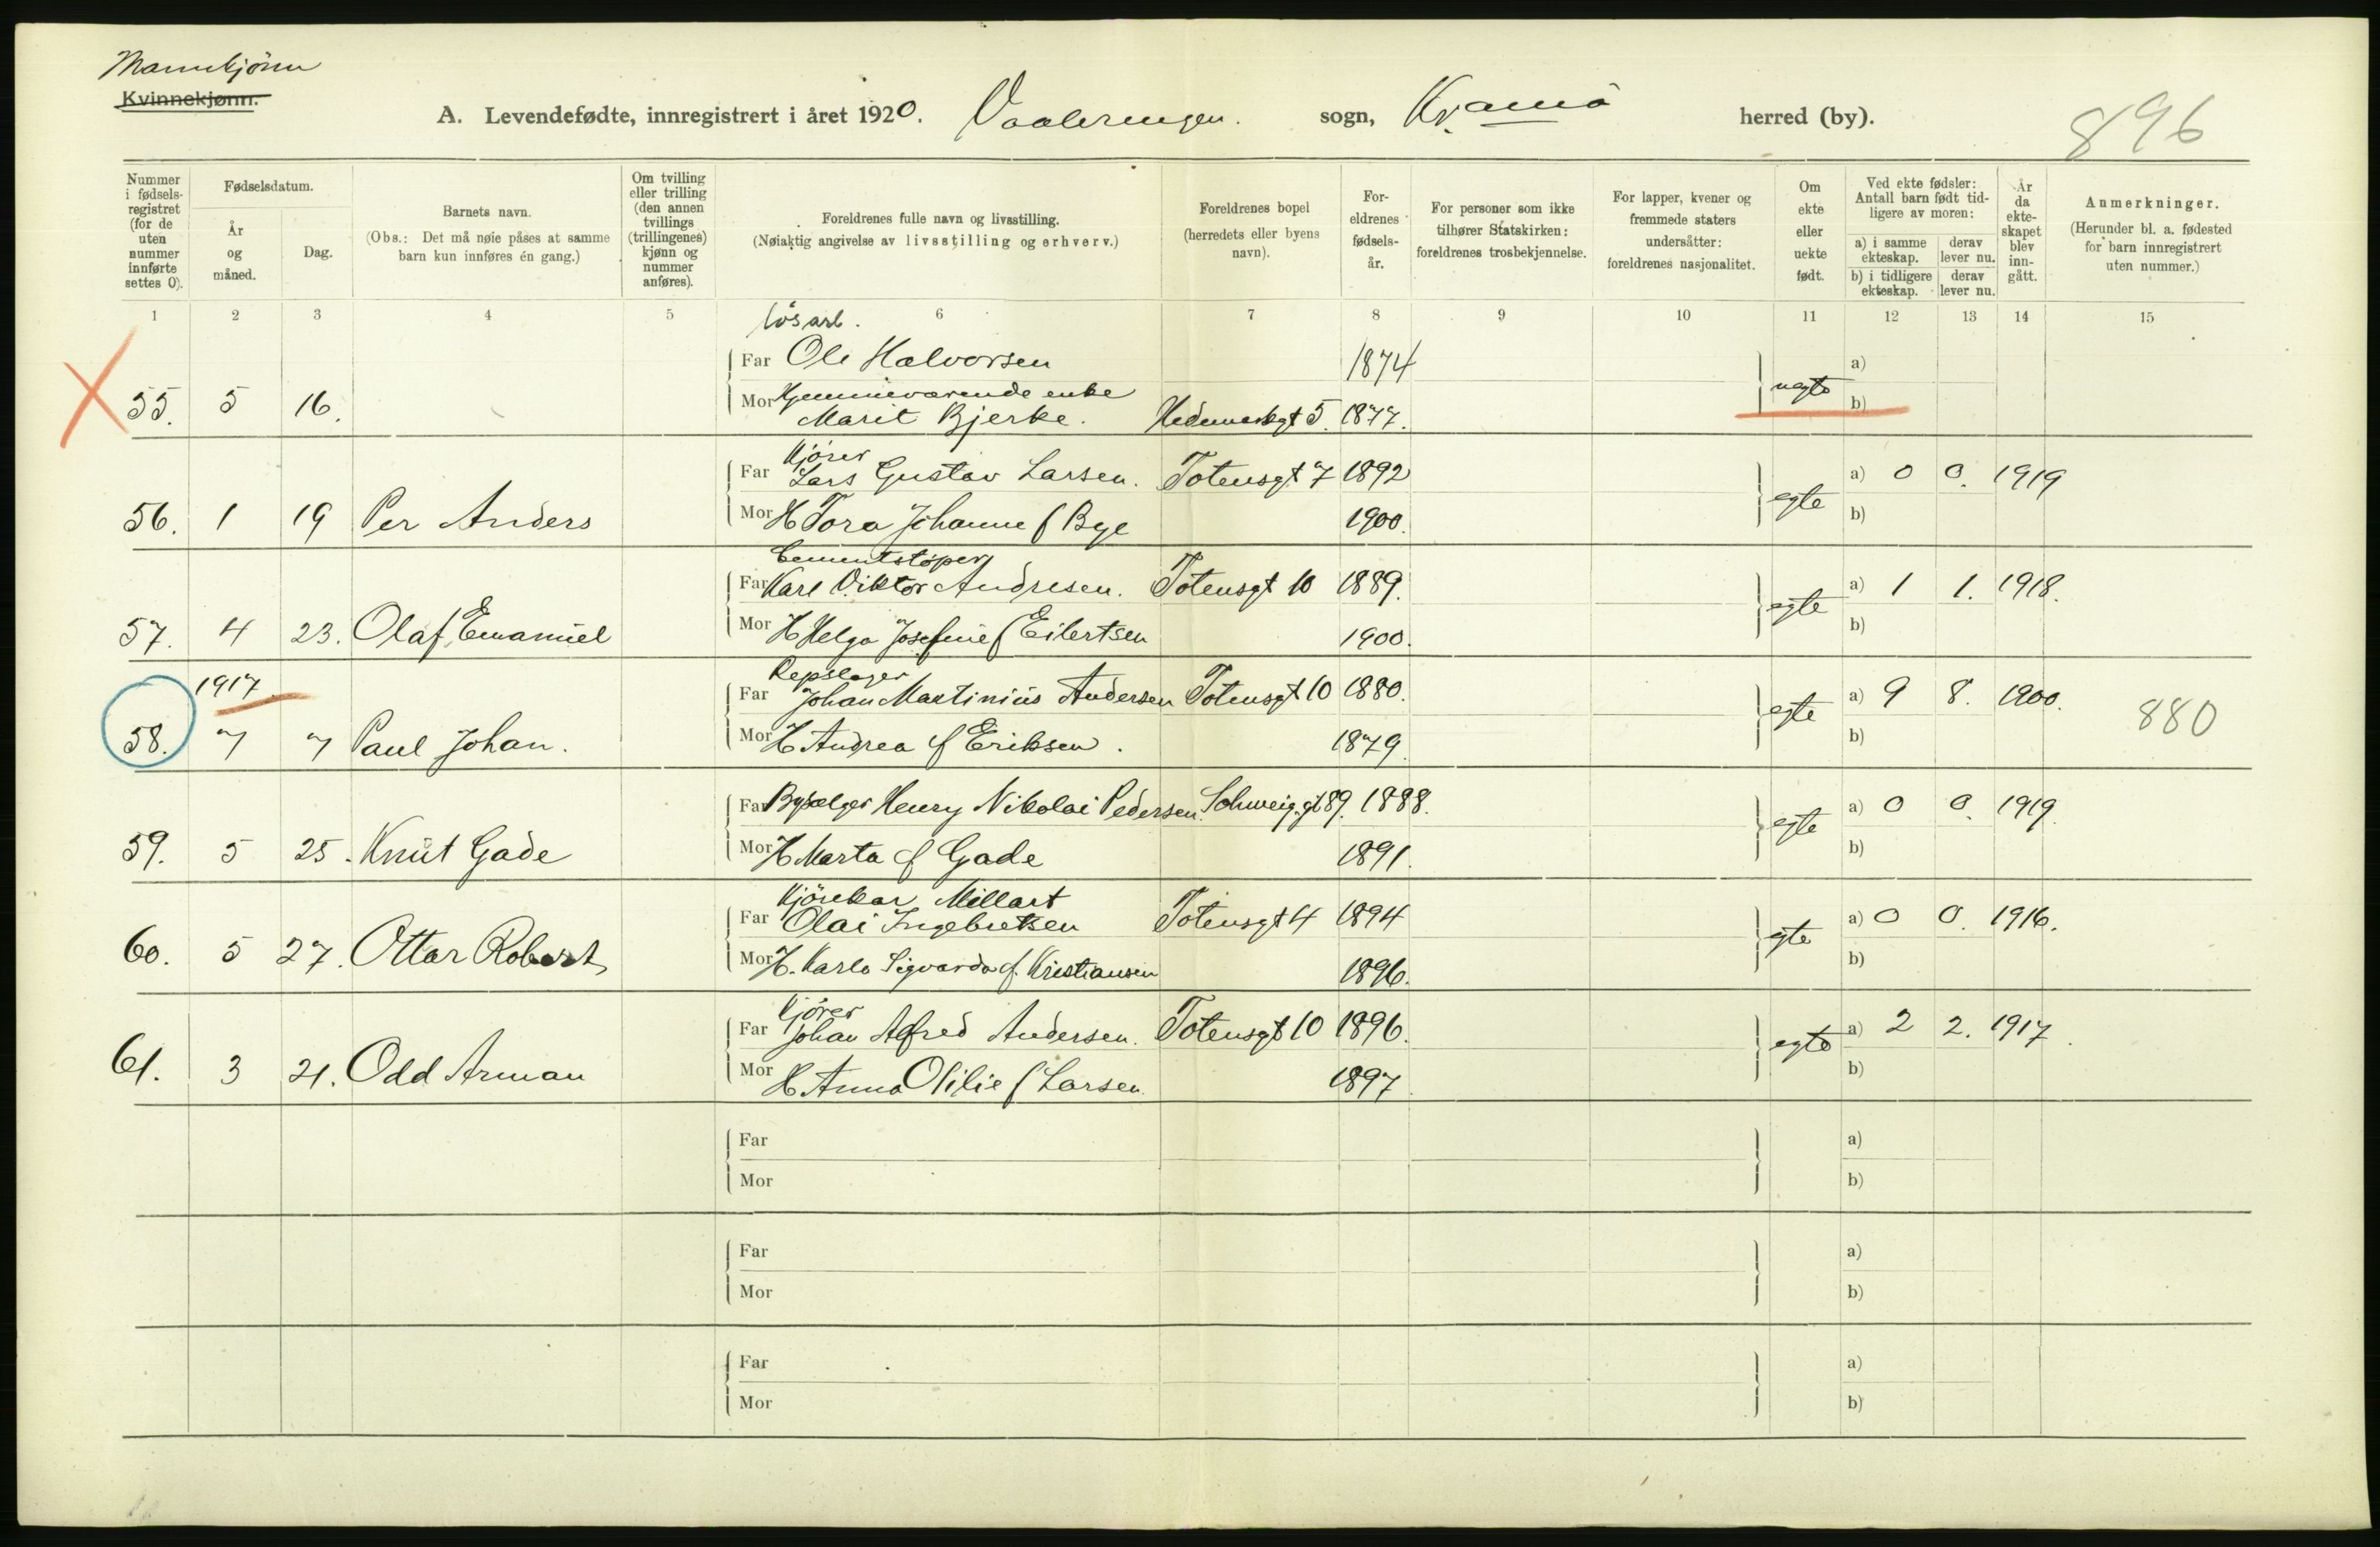 Mannkjønn
Kvinnekjønn.
A. Levendefødte, innregistrert i året 1920. Vaalerengen. sogn, Kr.ania herred (by).
896
Nummer i fødsels-registret (for de uten nummer innførte settes 0).
Fødselsdatum.
År og måned.
Dag.
Barnets navn.
(Obs.: Det må nøie påses at samme barn kun innføres én gang.)
Om tvilling eller trilling (den annen tvillings (trillingenes) kjønn og nummer anføres).
Foreldrenes fulle navn og livsstilling.
(Nøiaktig angivelse av livsstilling og erhverv.)
Foreldrenes bopel (herredets eller byens navn).
For-eldrenes fødsels-år.
For personer som ikke tilhører Statskirken: foreldrenes trosbekjennelse.
For lapper, kvener og fremmede staters undersåtter: foreldrenes nasjonalitet.
Om ekte eller uekte født.
Ved ekte fødsler: Antall barn født tid-ligere av moren:
a) i samme ekteskap. derav lever nu.
b) i tidligere ekteskap. derav lever nu.
År da ekte-skapet blev inn-gått.
Anmerkninger.
(Herunder bl. a. fødested for barn innregistrert uten nummer.)
1 2 3 4 5 6 7 8 9 10 11 12 13 14 15
løsarb.
Far Ole Halvorsen 1874 a)
55. 5 16. uegte
Mor Hjemmeværende enke
Marit Bjerke. Hedemarkgt 5. 1877. b)
Kjører
Far Lars Gustav Larsen. Totensgt 7 1892 a) 0 0. 1919
56. 1 19 Per Anders egte
Mor H Tora Johanne f Bye 1900. b)
Cementstøper
Far Karl Viktor Andresen. Totensgt 10 1889. a) 1 1. 1918.
57. 4 23. Olaf Emanuel egte
Mor H Helga Josefine f Eilertsen 1900. b)
1917.
Repslager
Far Johan Martinius Andersen Totensgt 10 1880. a) 9 8. 1900.
58. 7 7 Paul Johan. egte 880
Mor H Andrea f Eriksen. 1879. b)
Far Bysælger Henry Nikolai Pedersen. Schweig.gt 89. 1888. a) 0 0. 1919.
59. 5 25. Knut Gade egte
Mor H Marta f Gade 1891. b)
Kjørekar Millart
Far Olai Ingebretsen Totensgt 4 1894 a) 0 0. 1916.
60. 5 27. Ottar Robert egte
Mor H. Karla Sigvarda f. Kristiansen 1896. b)
Kjører
Far Johan Alfred Andersen. Totensgt 10 1896. a) 2 2. 1917.
61. 3 21. Odd Arman egte
Mor H Anna Otilie f Larsen. 1897. b)
Far a)
Mor b)
Far a)
Mor b)
Far a)
Mor b)